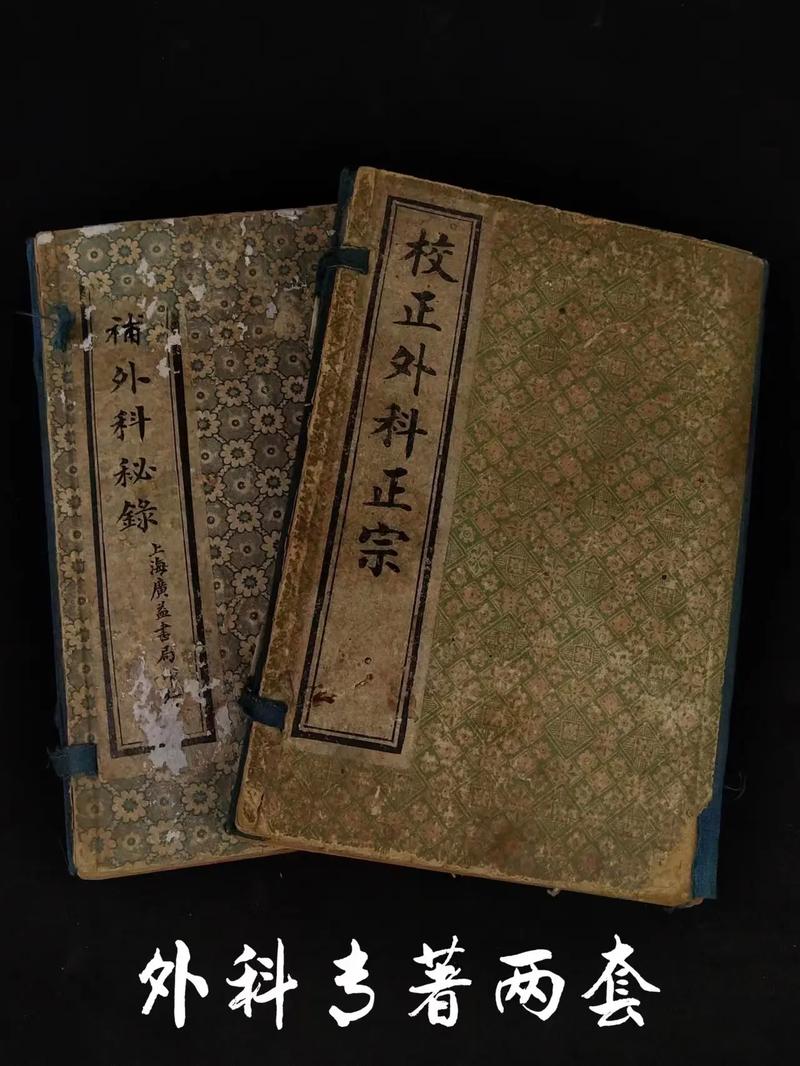 校正外科正宗
補外科秘錄
上海廣益書局
外科专著两套